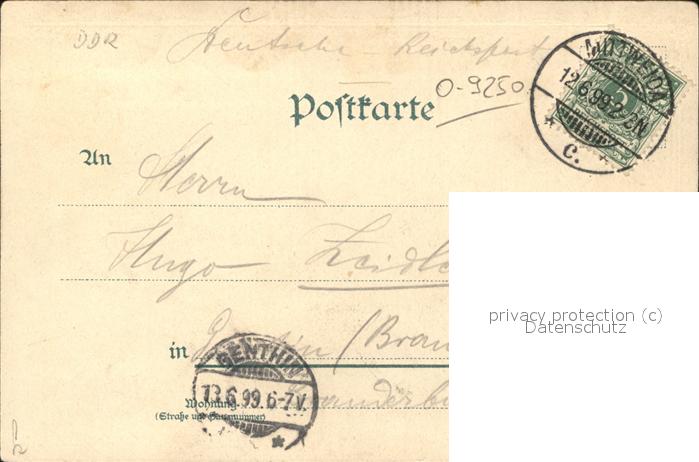 DDR Deutsche Reichspost
MITTWEIDA
12.6.99.
N
* c. *
O-9250
Postkarte
An Herrn
Hugo Zeidle
in Genthin (Bran
GENTHIN
13.6.99.6-7V.
*
Wohnung
(Straße und Hausnummer)
Brandenbu
privacy protection (c)
Datenschutz